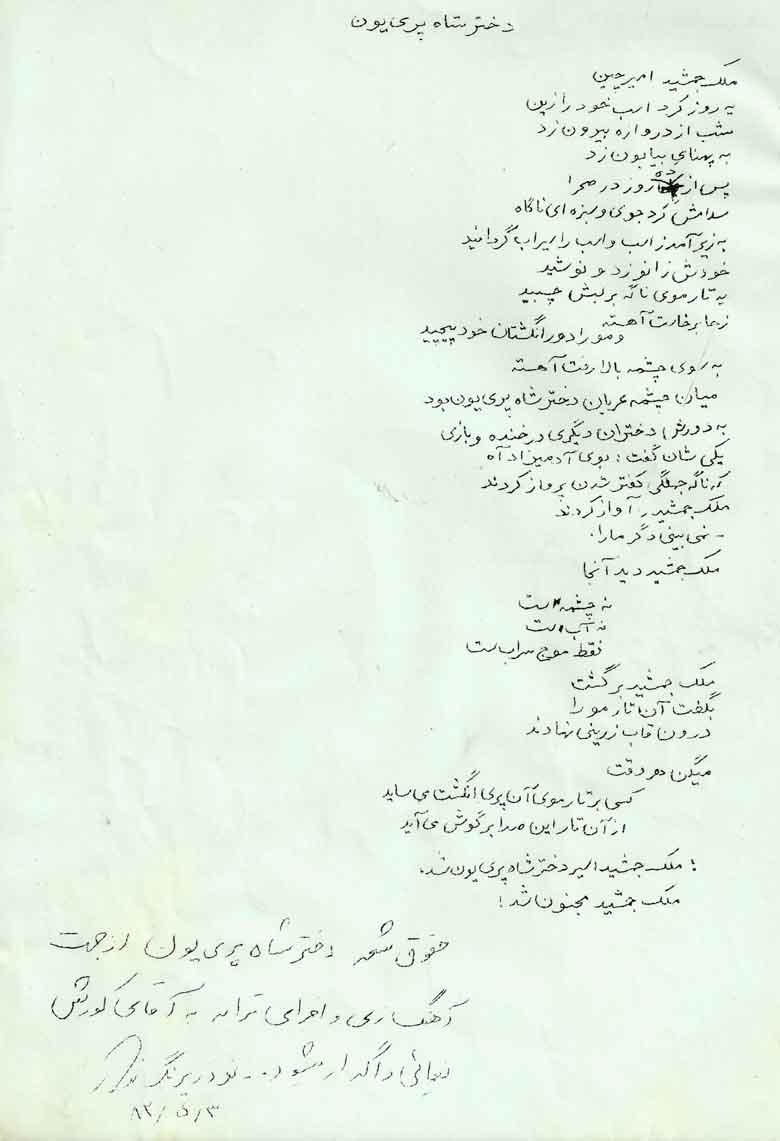 دختر شاه پری یون
ملک جمشید امیر چین
یه روز کرد اسب خود را زین
شب از دروازه بیرون زد
به پهنای بیابون زد
پس از ده روز در صحرا
سلامش کرد جوی و سبزه ای ناگاه
به زیر آمد ز اسب و اسب را سیراب گردانید
خودش زانو زد و نوشید
یه تار موی ناگه بر لبش چسبید
ز جا برخاست آهسته
و مو را دور انگشتان خود پیچید
به سوی چشمه بالا رفت آهسته
میان چشمه عریان دختر شاه پری یون بود
به دورش دختران دیگری در خنده و بازی
یکی شان گفت: بوی آدمیزاد آه
که ناگه جملگی کفتر شدن پرواز کردند
ملک جمشید را آواز کردند
- نمی بینی دگر ما را.
ملک جمشید دید آنجا
نه چشمه است
نه آب است
فقط موج سراب است
ملک جمشید برگشت
بگفت آن تار مو را
درون قاب زرینی نهادند
میگن هر وقت
کسی بر تار موی آن پری انگشت می ساید
از آن تار این صدا بر گوش می آید
: ملک جمشید اسیر دختر شاه پری یون شد.
ملک جمشید مجنون شد!
حقوق شعر دختر شاه پری یون از جهت
آهنگسازی و اجرای ترانه به آقای کورش
یغمائی واگذار میشود. - نوذر پرنگ
۸۲/۵/۳